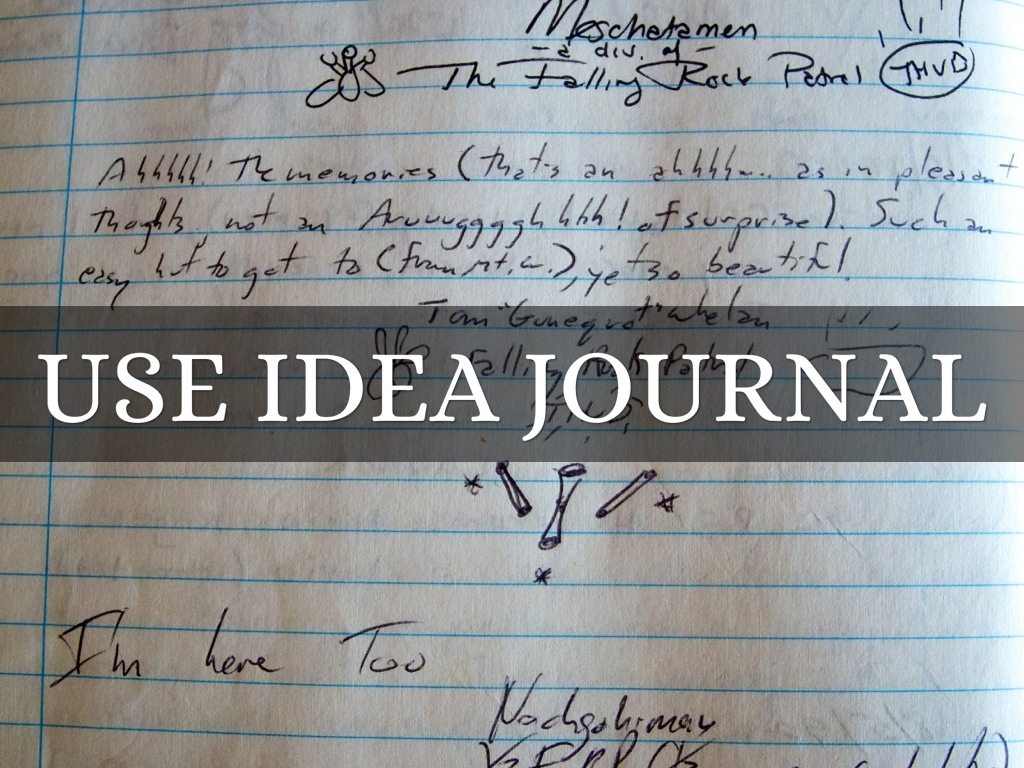 Meschatamen
- a div. of -
The Falling Rock Patrol THVD
Ahhhhh! The memories (that's an ahhhh... as in pleasant
thoughts, not an Aruuuggggh hhh! of surprise). Such an
easy hut to get to (from), yet so beautiful.
Tom "Gunequot" Whelan
Falling Rock Patrol
USE IDEA JOURNAL
I'm here Too